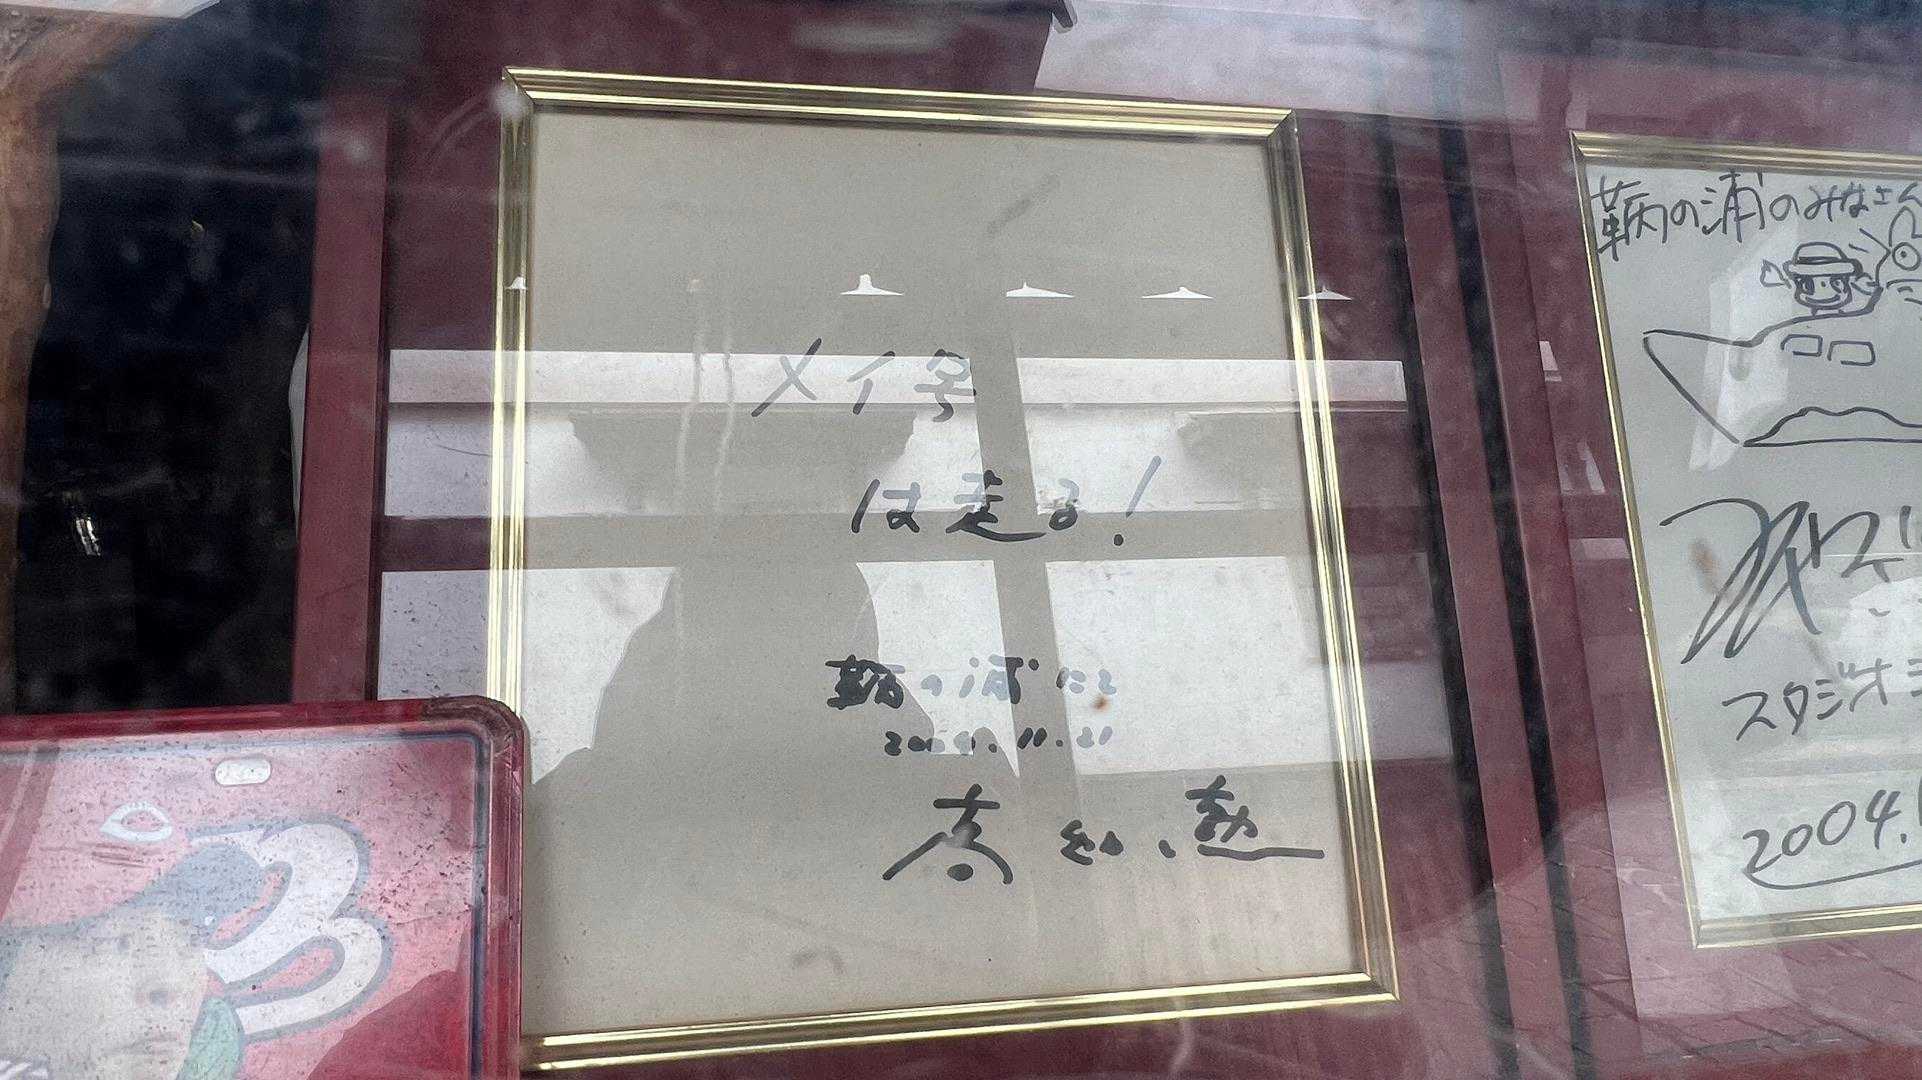 メイ号
は走る!
鞆の浦にて
2004.11.21
高畑 勲
鞆の浦のみなさん
スタジオ
2004.